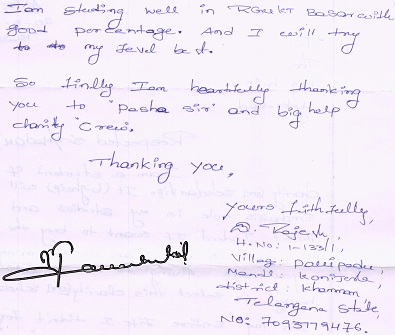 I am studing well in RGUKT Basar with
good percentage. And I will try
my level best.
So finlly I am heartfully thanking
you to "Pasha Sir" and big help
charity "Crew.
Thanking you,
yours faithfully,
D. Rajesh,
H.No: 1-133/1,
Village: pallipadu,
Mandl: Konijerla,
district: khammam
Telangana State,
No: 7093779476.